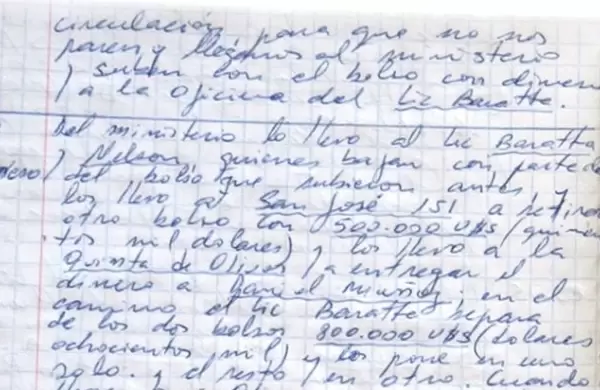 circulación para que no nos
paren y llegamos al ministerio
y suben con el bolso con dinero
a la oficina del Lic Baratta.
Del ministerio lo llevo al Lic Baratta
y Nelson quienes bajan con parte de
del bolso que subieron antes y
los llevo a San José 151 a retirar
otro bolso con 500.000 U$S (quinien
tos mil dolares) y los llevo a la
Quinta de Olivos a entregar el
dinero a Daniel Muñoz. en el
camino el lic Baratta separa
de los dos bolsos 800.000 U$S (dolares
ochocientos mil) y los pone en uno
solo. y el resto en otro. Cuando